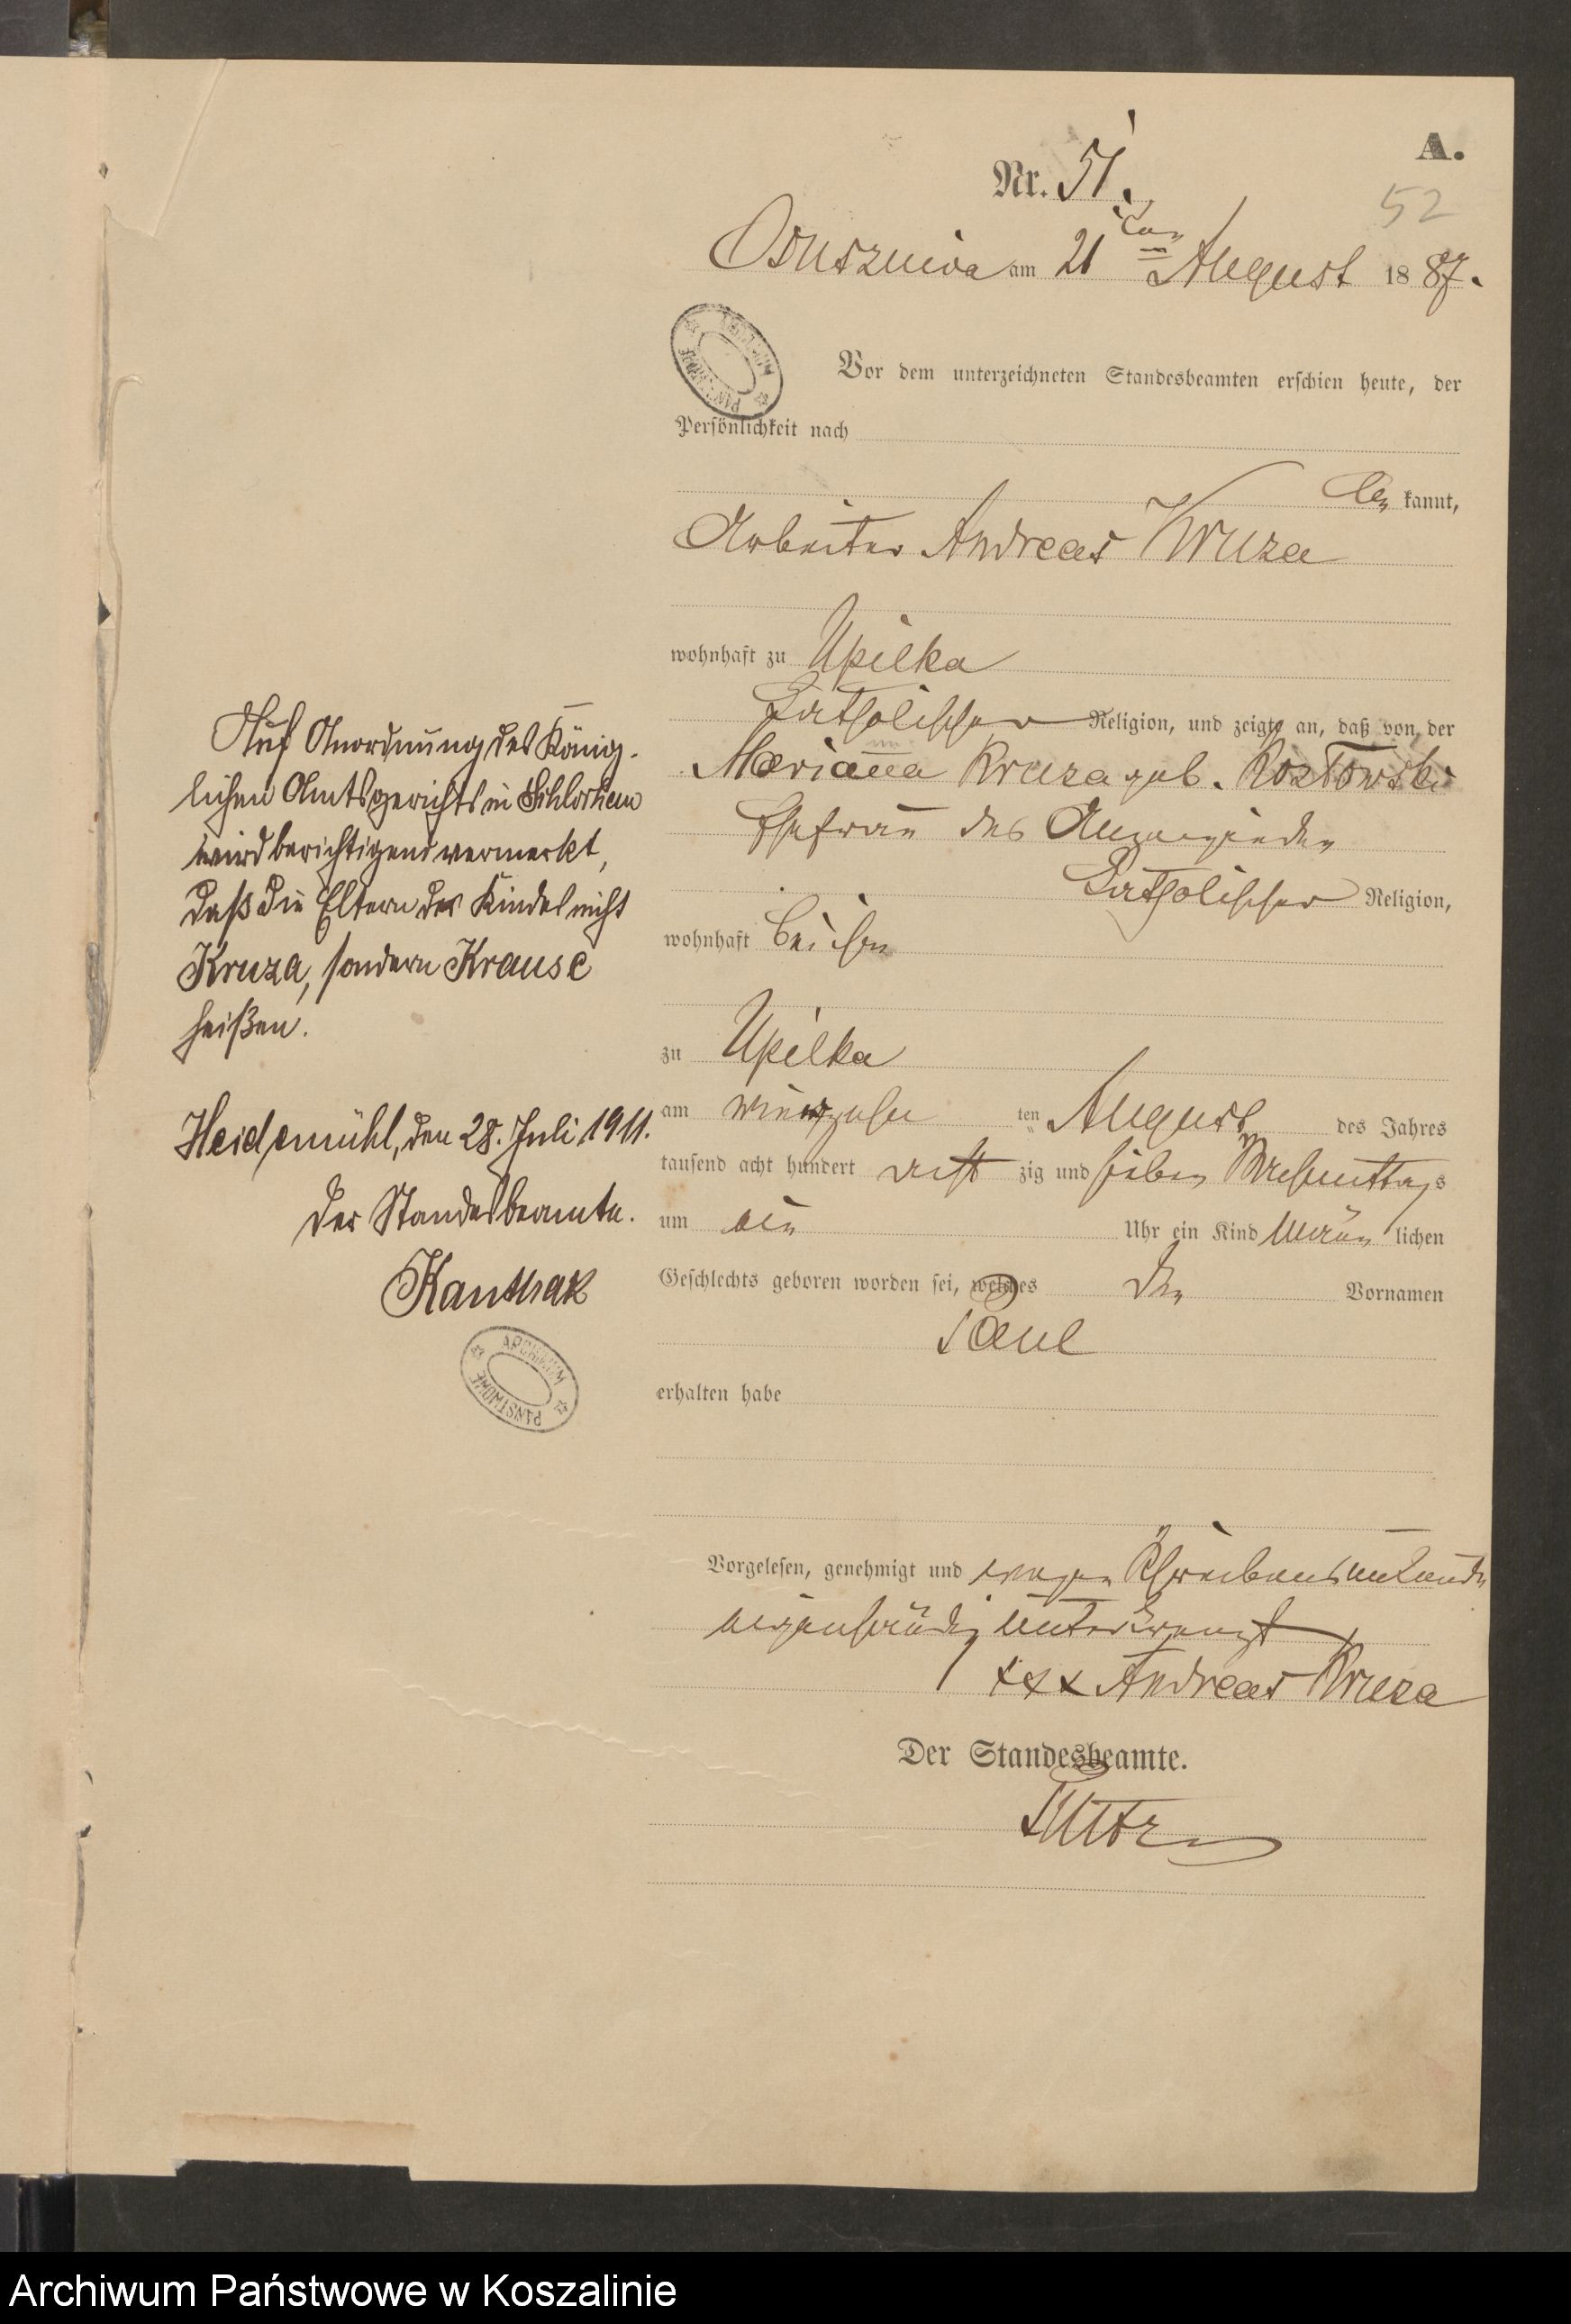 A.
Nr. 51.
52
Osuszniva am 21ten August 1887.
Vor dem unterzeichneten Standesbeamten erschien heute, der
Persönlichkeit nach
be kannt,
Arbeiter Andreas Kruza
wohnhaft zu Upilka
katholischer Religion, und zeigte an, daß von der
Marianna Kruza geb. Kostowski
Ehefrau des Anzeigenden
katholischer Religion,
wohnhaft bei ihm
zu Upilka
am vierzehn ten August des Jahres
tausend acht hundert acht zig und sieben Nachmittags
um ein Uhr ein Kind männ lichen
Geschlechts geboren worden sei, welches den Vornamen
Paul
erhalten habe
Vorgelesen, genehmigt und wegen Schreibensunkunde
eigenhändig unterkreuzt
xxx Andreas Kruza
Der Standesbeamte.
Auf Anordnung des König-
lichen Amtsgerichts in Schlochau
wird berichtigend vermerkt,
daß die Eltern des Kindes nicht
Kruza, sondern Krause
heißen.
Heidemühl, den 28. Juli 1911.
Der Standesbeamte.
Kanthak
ARCHIWUM PAŃSTWOWE
Archiwum Państwowe w Koszalinie